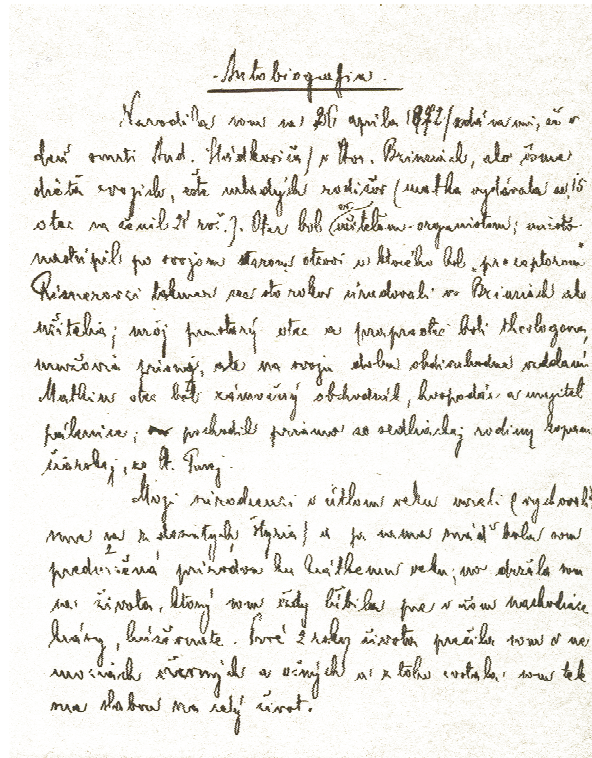 Autobiografia.
Narodila som sa 26 apríla 1872 / zdá sa mi, že v
deň smrti And. Sládkoviča / v Hor. Brieniach, ako ôsme
dieťa svojich, ešte mladých rodičov (matka vydávala sa 15
otec sa ženil 21 roč.). Otec bol ev. učiteľom-organistom; miesto
nastúpil po svojom starom otcovi u ktorého bol „preceptorom"
takmer za sto rokov úradovali v Brieniach ako
učitelia; môj prastarý otec a prapraotec boli theologovia,
mužovia prísni, ale na svoju dobu obdivuhodne vzdelaní
Matkin otec bol zámožný obchodník, hospodár a majiteľ
pálenice; pochodil priamo zo sedliackej rodiny
zo
Moji súrodenci v útlom veku umreli (vychovali
sme sa z desiatych štyria) a ja sama snáď bola som
predurčená prírodou ku krátkemu veku; no držala som
sa života, ktorý som vždy ľúbila pre v ňom nachodiace
krásy, húževnate. Prvé 2 roky života prežila som v ne
mociach a očných a z toho zostala som
slabou na celý život.